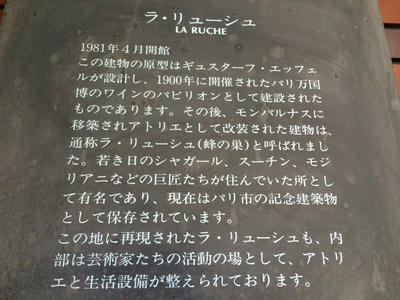 ラ・リューシュ
LA RUCHE
1981年4月開館
この建物の原型はギュスターフ・エッフェ
ルが設計し、1900年に開催されたパリ万国
博のワインのパビリオンとして建設された
ものであります。その後、モンパルナスに
移築されアトリエとして改装された建物は、
通称ラ・リューシュ(蜂の巣)と呼ばれまし
た。若き日のシャガール、スーチン、モジ
リアニなどの巨匠たちが住んでいた所とし
て有名であり、現在はパリ市の記念建築物
として保存されています。
この地に再現されたラ・リューシュも、内
部は芸術家たちの活動の場として、アトリ
エと生活設備が整えられております。